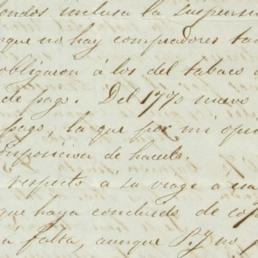 fondos inclusa la suspensi
que no hay compradores ta
obligaron á los del tabaco
de pago. Del 1770 nuevo
pago, la que por mi opin
Imposicion de hacerla.
respecto á su viage á
que haya concluido de co
falta, aunque